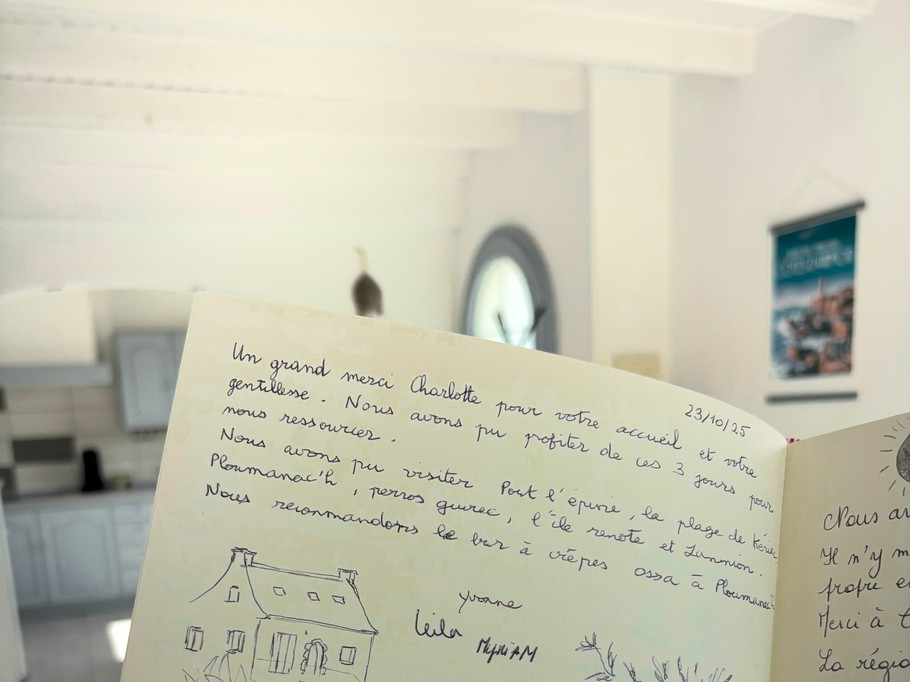 23/10/25
Un grand merci Charlotte pour votre accueil et votre
gentillesse. Nous avons pu profiter de ces 3 jours pour
nous ressourcer.
Nous avons pu visiter Port l'épine, la plage de
Ploumanac'h, perros guirec, l'île renote et Lannion.
Nous recommandons le bar à crêpes ossa à Ploumanac'h
Yvonne
Leila
MyriAM
Nous
Il n'y
propre
Merci à
La régio